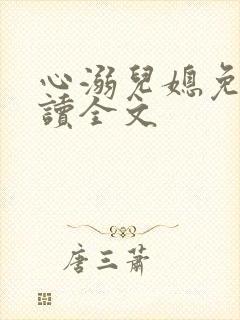 心溺兒媳免
讀全文
唐三蕭